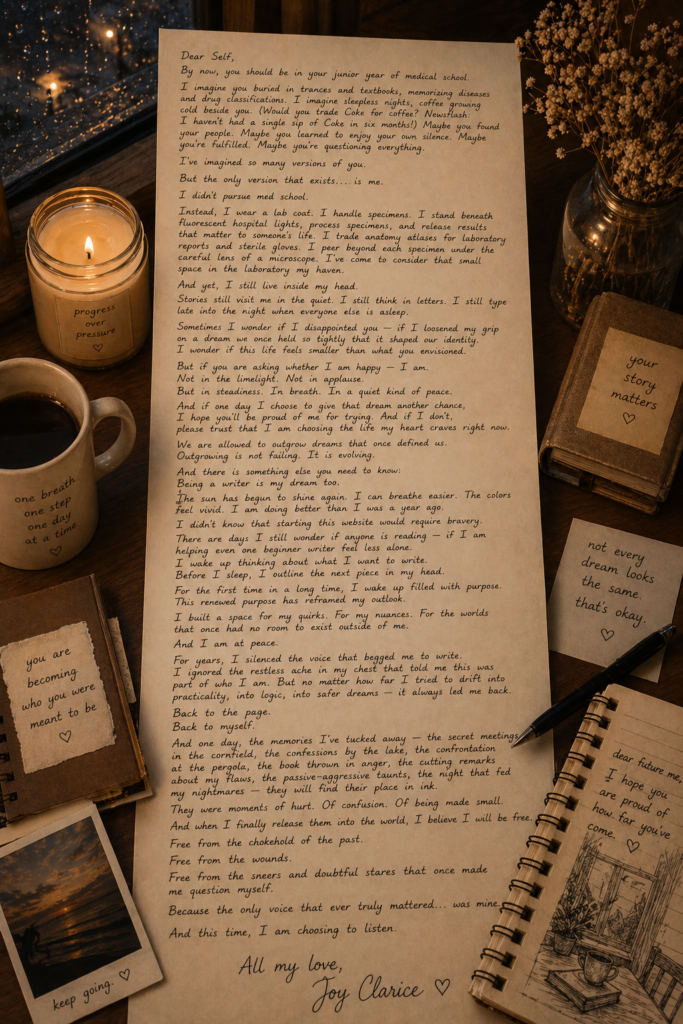 Dear Self,
By now, you should be in your junior year of medical school.
I imagine you buried in trances and textbooks, memorizing diseases
and drug classifications. I imagine sleepless nights, coffee growing
cold beside you. (Would you trade Coke for coffee? Newsflash:
I haven't had a single sip of Coke in six months!) Maybe you found
your people. Maybe you learned to enjoy your own silence. Maybe
you're fulfilled. Maybe you're questioning everything.
I've imagined so many versions of you.
But the only version that exists.... is me.
I didn't pursue med school.
Instead, I wear a lab coat. I handle specimens. I stand beneath
fluorescent hospital lights, process specimens, and release results
that matter to someone's life. I trade anatomy atlases for laboratory
reports and sterile gloves. I peer beyond each specimen under the
careful lens of a microscope. I've come to consider that small
space in the laboratory my haven.
And yet, I still live inside my head.
Stories still visit me in the quiet. I still think in letters. I still type
late into the night when everyone else is asleep.
Sometimes I wonder if I disappointed you — if I loosened my grip
on a dream we once held so tightly that it shaped our identity.
I wonder if this life feels smaller than what you envisioned.
But if you are asking whether I am happy — I am.
Not in the limelight. Not in applause.
But in steadiness. In breath. In a quiet kind of peace.
And if one day I choose to give that dream another chance,
I hope you'll be proud of me for trying. And if I don't,
please trust that I am choosing the life my heart craves right now.
We are allowed to outgrow dreams that once defined us.
Outgrowing is not failing. It is evolving.
And there is something else you need to know:
Being a writer is my dream too.
The sun has begun to shine again. I can breathe easier. The colors
feel vivid. I am doing better than I was a year ago.
I didn't know that starting this website would require bravery.
There are days I still wonder if anyone is reading — if I am
helping even one beginner writer feel less alone.
I wake up thinking about what I want to write.
Before I sleep, I outline the next piece in my head.
For the first time in a long time, I wake up filled with purpose.
This renewed purpose has reframed my outlook.
I built a space for my quirks. For my nuances. For the worlds
that once had no room to exist outside of me.
And I am at peace.
For years, I silenced the voice that begged me to write.
I ignored the restless ache in my chest that told me this was
part of who I am. But no matter how far I tried to drift into
practicality, into logic, into safer dreams — it always led me back.
Back to the page.
Back to myself.
And one day, the memories I've tucked away — the secret meetings
in the cornfield, the confessions by the lake, the confrontation
at the pergola, the book thrown in anger, the cutting remarks
about my flaws, the passive-aggressive taunts, the night that fed
my nightmares — they will find their place in ink.
They were moments of hurt. Of confusion. Of being made small.
And when I finally release them into the world, I believe I will be free.
Free from the chokehold of the past.
Free from the wounds.
Free from the sneers and doubtful stares that once made
me question myself.
Because the only voice that ever truly mattered... was mine.
And this time, I am choosing to listen.
All my love,
Joy Clarice ♡
progress
over
pressure
♡
one breath
one step
one day
at a time
♡
you are
becoming
who you were
meant to be
♡
keep going. ♡
your
story
matters
♡
not every
dream looks
the same.
that's okay.
♡
dear future me,
I hope you
are proud of
how far you've
come. ♡